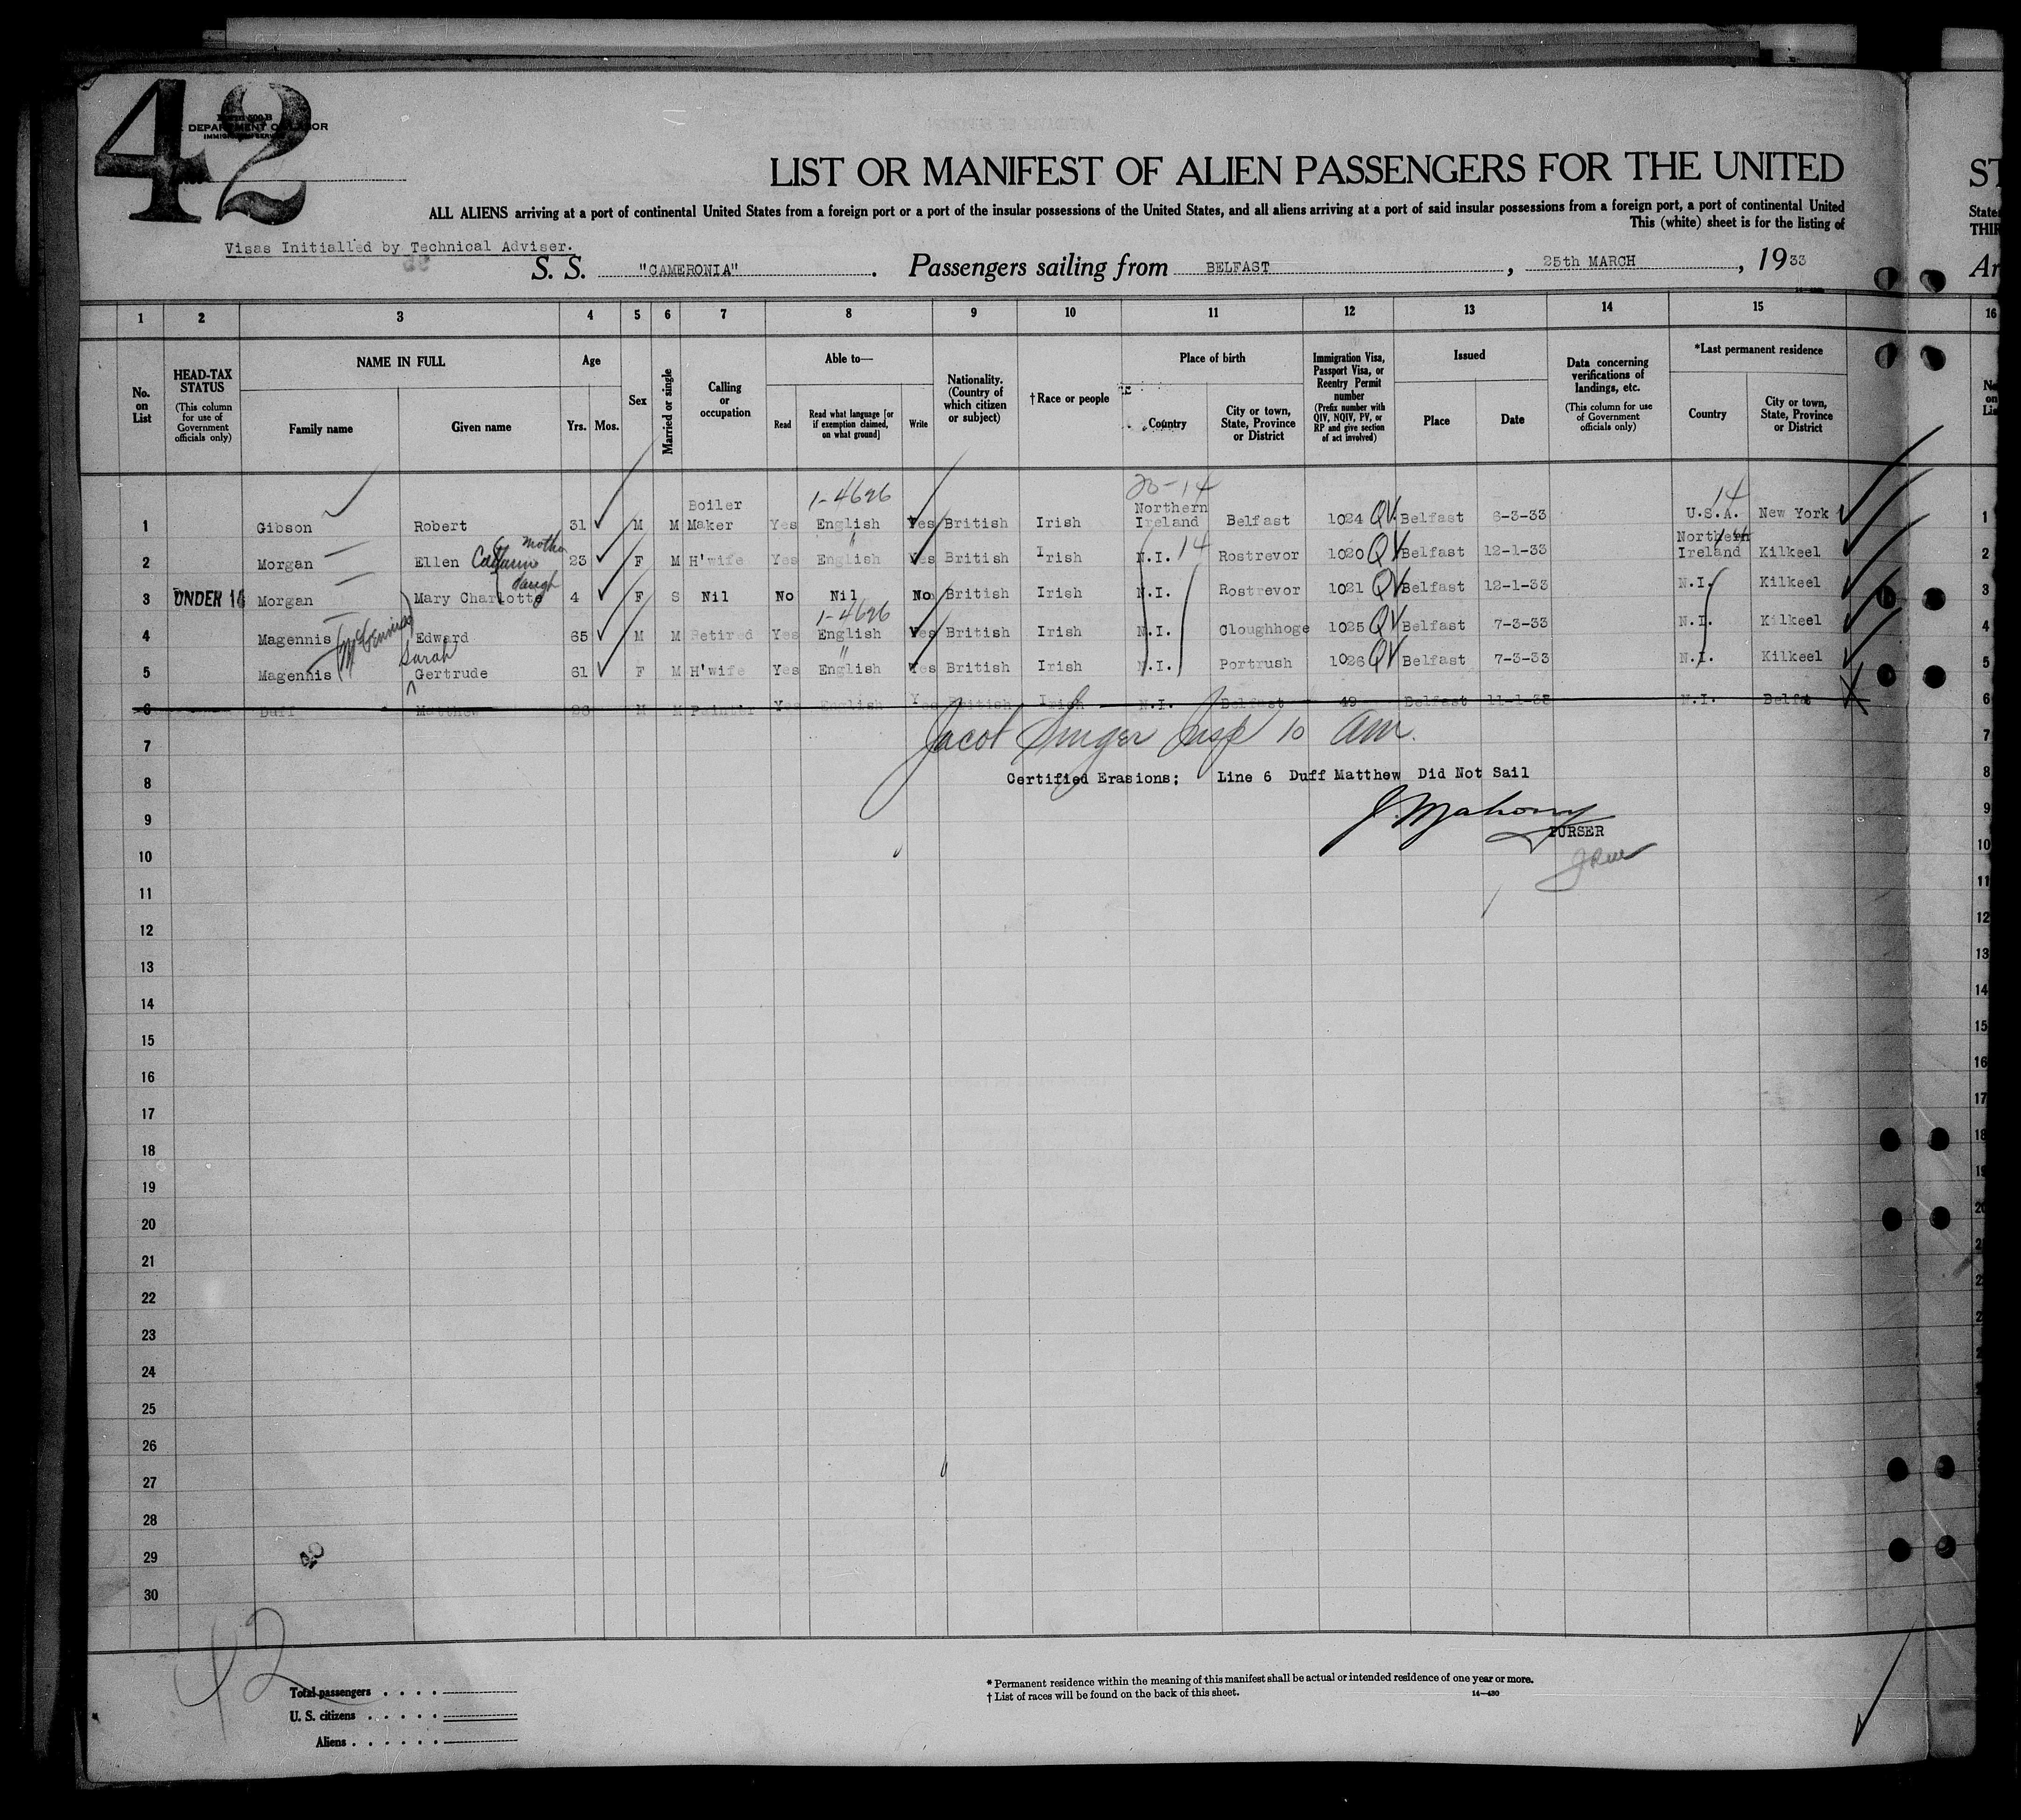 42
Form 500 B
DEPARTMENT OF LABOR
IMMIGRATION SERVICE
LIST OR MANIFEST OF ALIEN PASSENGERS FOR THE UNITED
ST
ALL ALIENS arriving at a port of continental United States from a foreign port or a port of the insular possessions of the United States, and all aliens arriving at a port of said insular possessions from a foreign port, a port of continental United
States
This (white) sheet is for the listing of
THIR
Visas Initialled by Technical Adviser.
S. S. "CAMERONIA". Passengers sailing from BELFAST, 25th MARCH, 1933
Ar
1 2 3 4 5 6 7 8 9 10 11 12 13 14 15 16
No. on List
HEAD-TAX STATUS (This column for use of Government officials only)
NAME IN FULL
Family name
Given name
Age
Yrs. Mos.
Sex
Married or single
Calling or occupation
Able to—
Read
Read what language [or if exemption claimed, on what ground]
Write
Nationality. (Country of which citizen or subject)
†Race or people
Place of birth
Country
City or town, State, Province or District
Immigration Visa, Passport Visa, or Reentry Permit number (Prefix number with QIV, NQIV, PV, or RP and give section of act involved)
Issued
Place
Date
Data concerning verifications of landings, etc. (This column for use of Government officials only)
*Last permanent residence
Country
City or town, State, Province or District
No. on List
1-4696 20-14 14
1 Gibson Robert 31 M M Boiler Maker Yes English Yes British Irish Northern Ireland Belfast 1024 QV Belfast 6-3-33 U.S.A. New York 1
mother
2 Morgan Ellen 23 F M H'wife Yes English Yes British Irish N.I. 14 Rostrevor 1020 QV Belfast 12-1-33 Northern Ireland Kilkeel 2
daugh
3 UNDER 16 Morgan Mary Charlotte 4 F S Nil No Nil No British Irish N.I. Rostrevor 1021 QV Belfast 12-1-33 N.I. Kilkeel 3
1-4696
4 Magennis (McGennis) Edward 65 M M Retired Yes English Yes British Irish N.I. Cloughhoge 1025 QV Belfast 7-3-33 N.I. Kilkeel 4
Sarah
5 Magennis Gertrude 61 F M H'wife Yes English Yes British Irish N.I. Portrush 1026 QV Belfast 7-3-33 N.I. Kilkeel 5
6 Duff Matthew 26 M M Painter Yes English Yes British Irish N.I. Belfast 49 Belfast 11-1-33 N.I. Belfst 6
7 Jacob Singer Insp 10 am. 7
8 Certified Erasions; Line 6 Duff Matthew Did Not Sail 8
9 J. Mahony 9
PURSER
10 10
11 11
12 12
13 13
14 14
15 15
16 16
17 17
18 18
19 19
20 20
21
22
23
24
25
26
27
28
29
30
42
Total passengers . . . .
U. S. citizens . . . . .
Aliens . . . . . .
* Permanent residence within the meaning of this manifest shall be actual or intended residence of one year or more.
† List of races will be found on the back of this sheet. 14—430